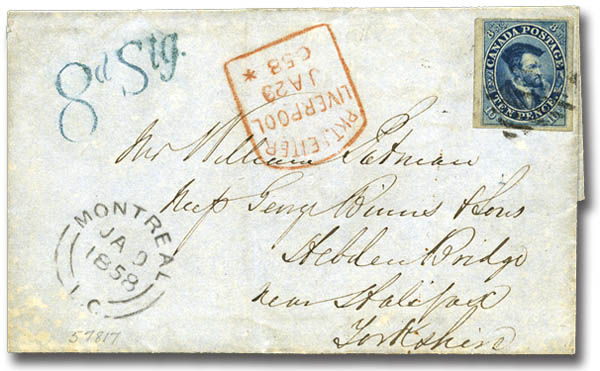 8d Stg.
PKT. LETTER
LIVERPOOL
JA 23
58 *
CANADA POSTAGE
TEN PENCE
Mr William
Geo Binns & Sons
Hebden Bridge
near Halifax
Yorkshire
MONTREAL
JA 9
1858
L.C.
57817